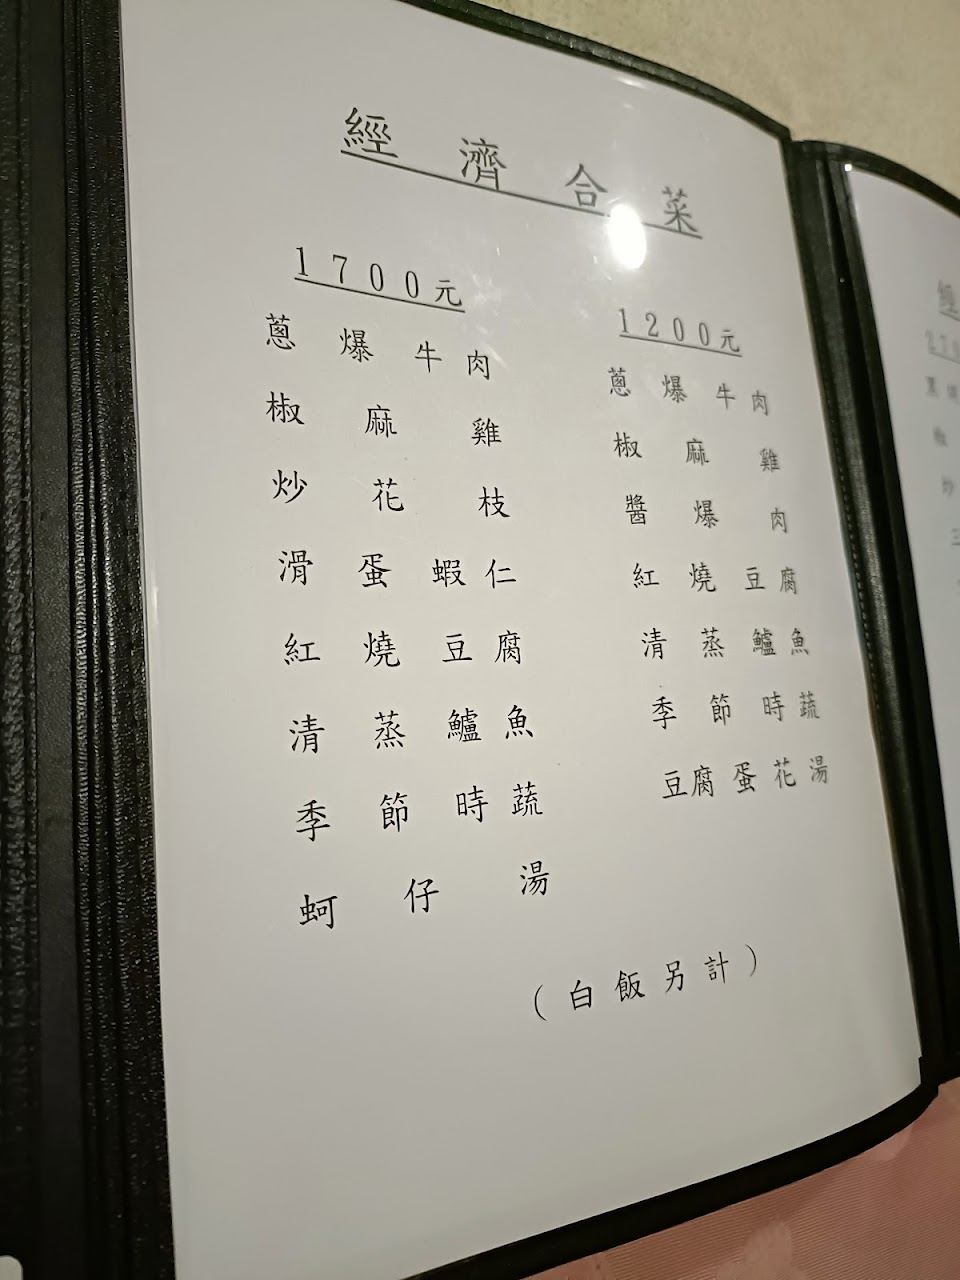 經濟合菜
1700元
蔥爆牛肉
椒麻雞
炒花枝
滑蛋蝦仁
紅燒豆腐
清蒸鱸魚
季節時蔬
蚵仔湯
1200元
蔥爆牛肉
椒麻雞
醬爆肉
紅燒豆腐
清蒸鱸魚
季節時蔬
豆腐蛋花湯
(白飯另計)